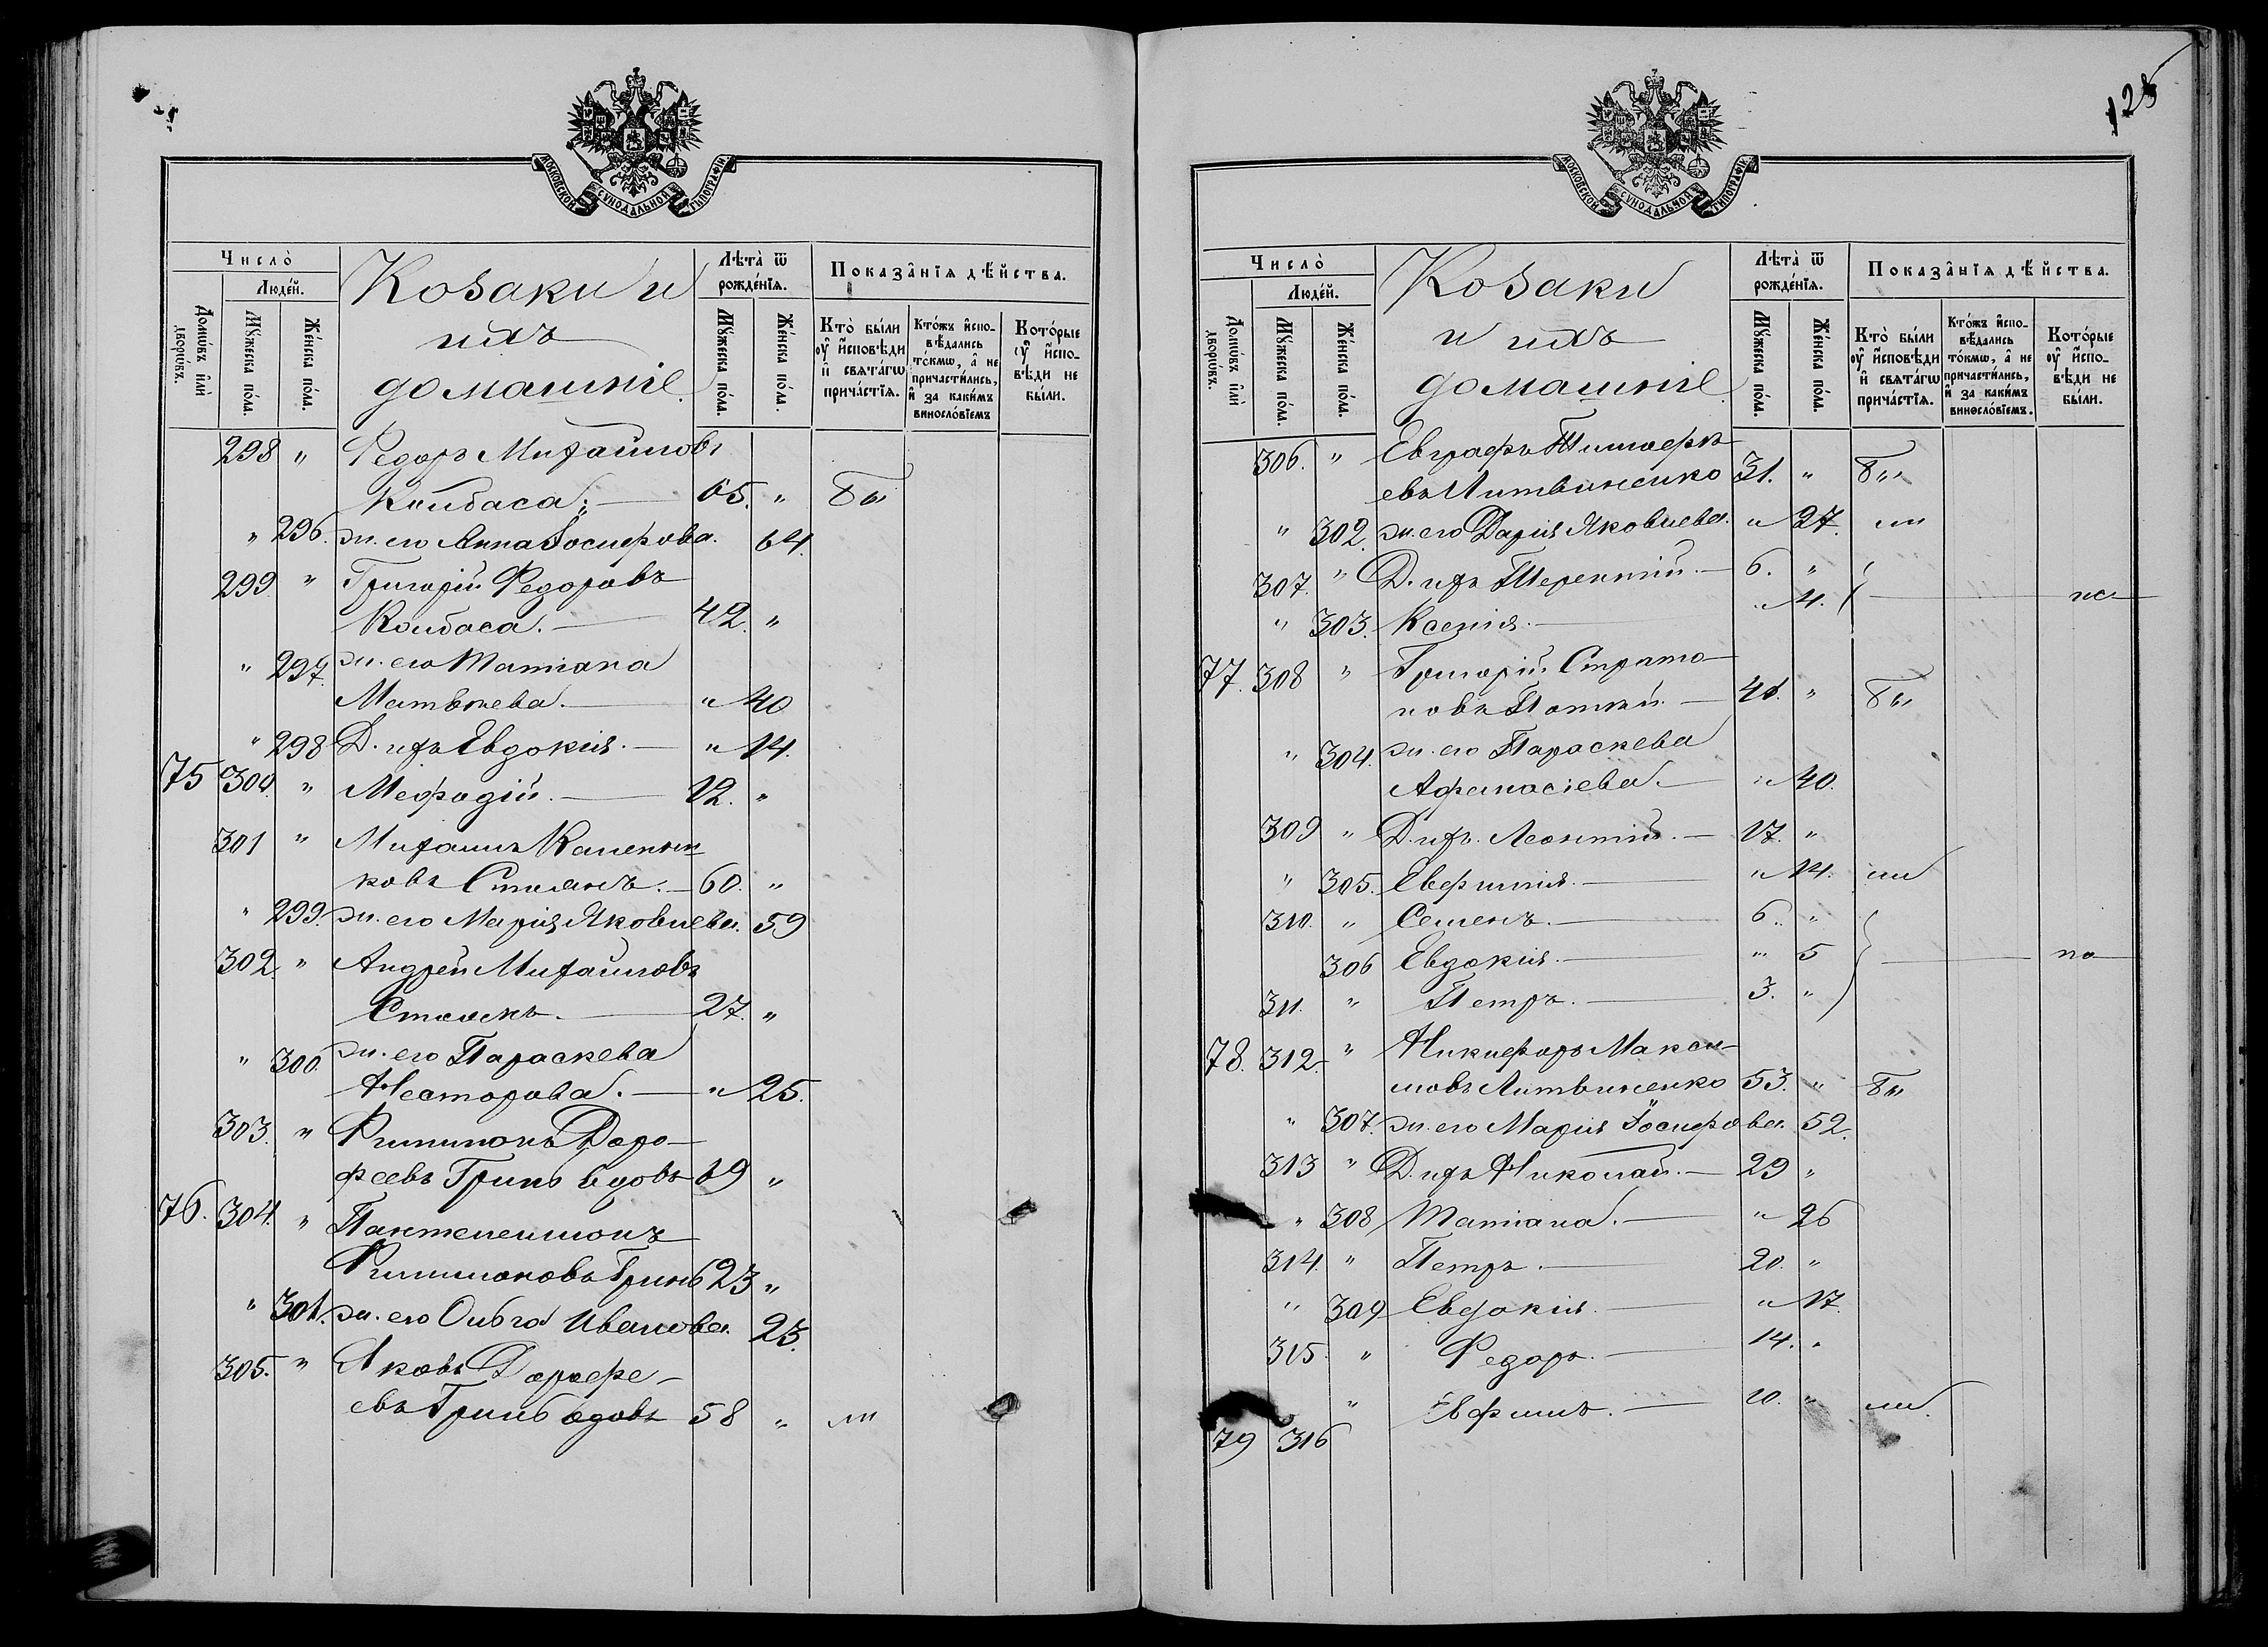 МОСКОВСКОЙ СѴНОДАЛЬНОЙ ТИПОГРАФІИ
Число̀
Людей.
Домѡвъ и҆лѝ дворѡвъ.
Мꙋжеска пола.
Женска пола.
Козаки и
ихъ
домашніе
Лѣта̀ ѿ рожденїѧ.
Мꙋжеска пола.
Женска пола.
Показанїѧ дѣйства.
Кто̀ были ᲂу҆ и҆сповѣди и҆ свѧтагѡ причастїѧ.
Ктожъ и҆сповѣдались токмѡ, а҆ не причастились, и҆ за какимъ винословїемъ
Которые ᲂу҆ и҆споวѣди не были.
298 " Федоръ Михайловъ
Колбаса. — 65. " бы
" 296. ж. его Анна Іосифова. 64.
299. " Григорій Федоровъ
Колбаса. — 42. "
" 297. ж. его Татіана
Матвѣева. — " 40
" 298 Д. ихъ Евдокія. — " 14.
75 300. " Мефодій. — 12. "
301 " Михаилъ
ковъ — 60. "
" 299. ж. его Марія Яковлева. 59
302. " Андрей Михайловъ
— 27. "
" 300. ж. его Параскева
Несторова. — " 25.
303. " Филимонъ Доро-
феевъ Гринь вдовъ 69 "
76. 304. " Пантелеимонъ
Филимоновъ Гринь 23 "
" 301. ж. его Ольга Иванова. 23.
305. " Яковъ Дорофе-
евъ Гринь вдовъ 58 " ли
125
МОСКОВСКОЙ СѴНОДАЛЬНОЙ ТИПОГРАФІИ
Число̀
Людей.
Домѡвъ и҆лѝ дворѡвъ.
Мꙋжеска пола.
Женска пола.
Козаки
и ихъ
домашніе
Лѣта̀ ѿ рожденїѧ.
Мꙋжеска пола.
Женска пола.
Показанїѧ дѣйства.
Кто̀ были ᲂу҆ и҆сповѣди и҆ свѧтагѡ причастїѧ.
Ктожъ и҆сповѣдались токмѡ, а҆ не причастились, и҆ за какимъ винословїемъ.
Которые ᲂу҆ и҆сповѣди не были.
306. " Евграфъ Тимофе-
евъ Литвиненко 31. " бы
" 302. ж. его Дарія Яковлева. " 27. ли
307. " Д. ихъ Терентій. — 6. "
" 303. Ксенія. — " 4. — не
77. 308 " Григорій Страто-
новъ — 41. " бы
" 304. ж. его Параскева
Афанасіева. — " 40.
309 " Д. ихъ Леонтій. — 17. "
" 305. Евфимія. — " 14. ли
310. " Семенъ. — 6. "
306 Евдокія. — " 5 — по
311. " Петръ. — 3. "
78. 312. " Никифоръ Макси-
мовъ Литвиненко 53. " бы
" 307. ж. его Марія Іосифова. 52.
313 " Д. ихъ Николай. — 29 "
" 308 Татіана. — " 26
314. " Петръ. — 20. "
" 309 Евдокія. — " 17.
315. " Федоръ. — 14. "
" Евфимъ. — 10. " ли.
79 316